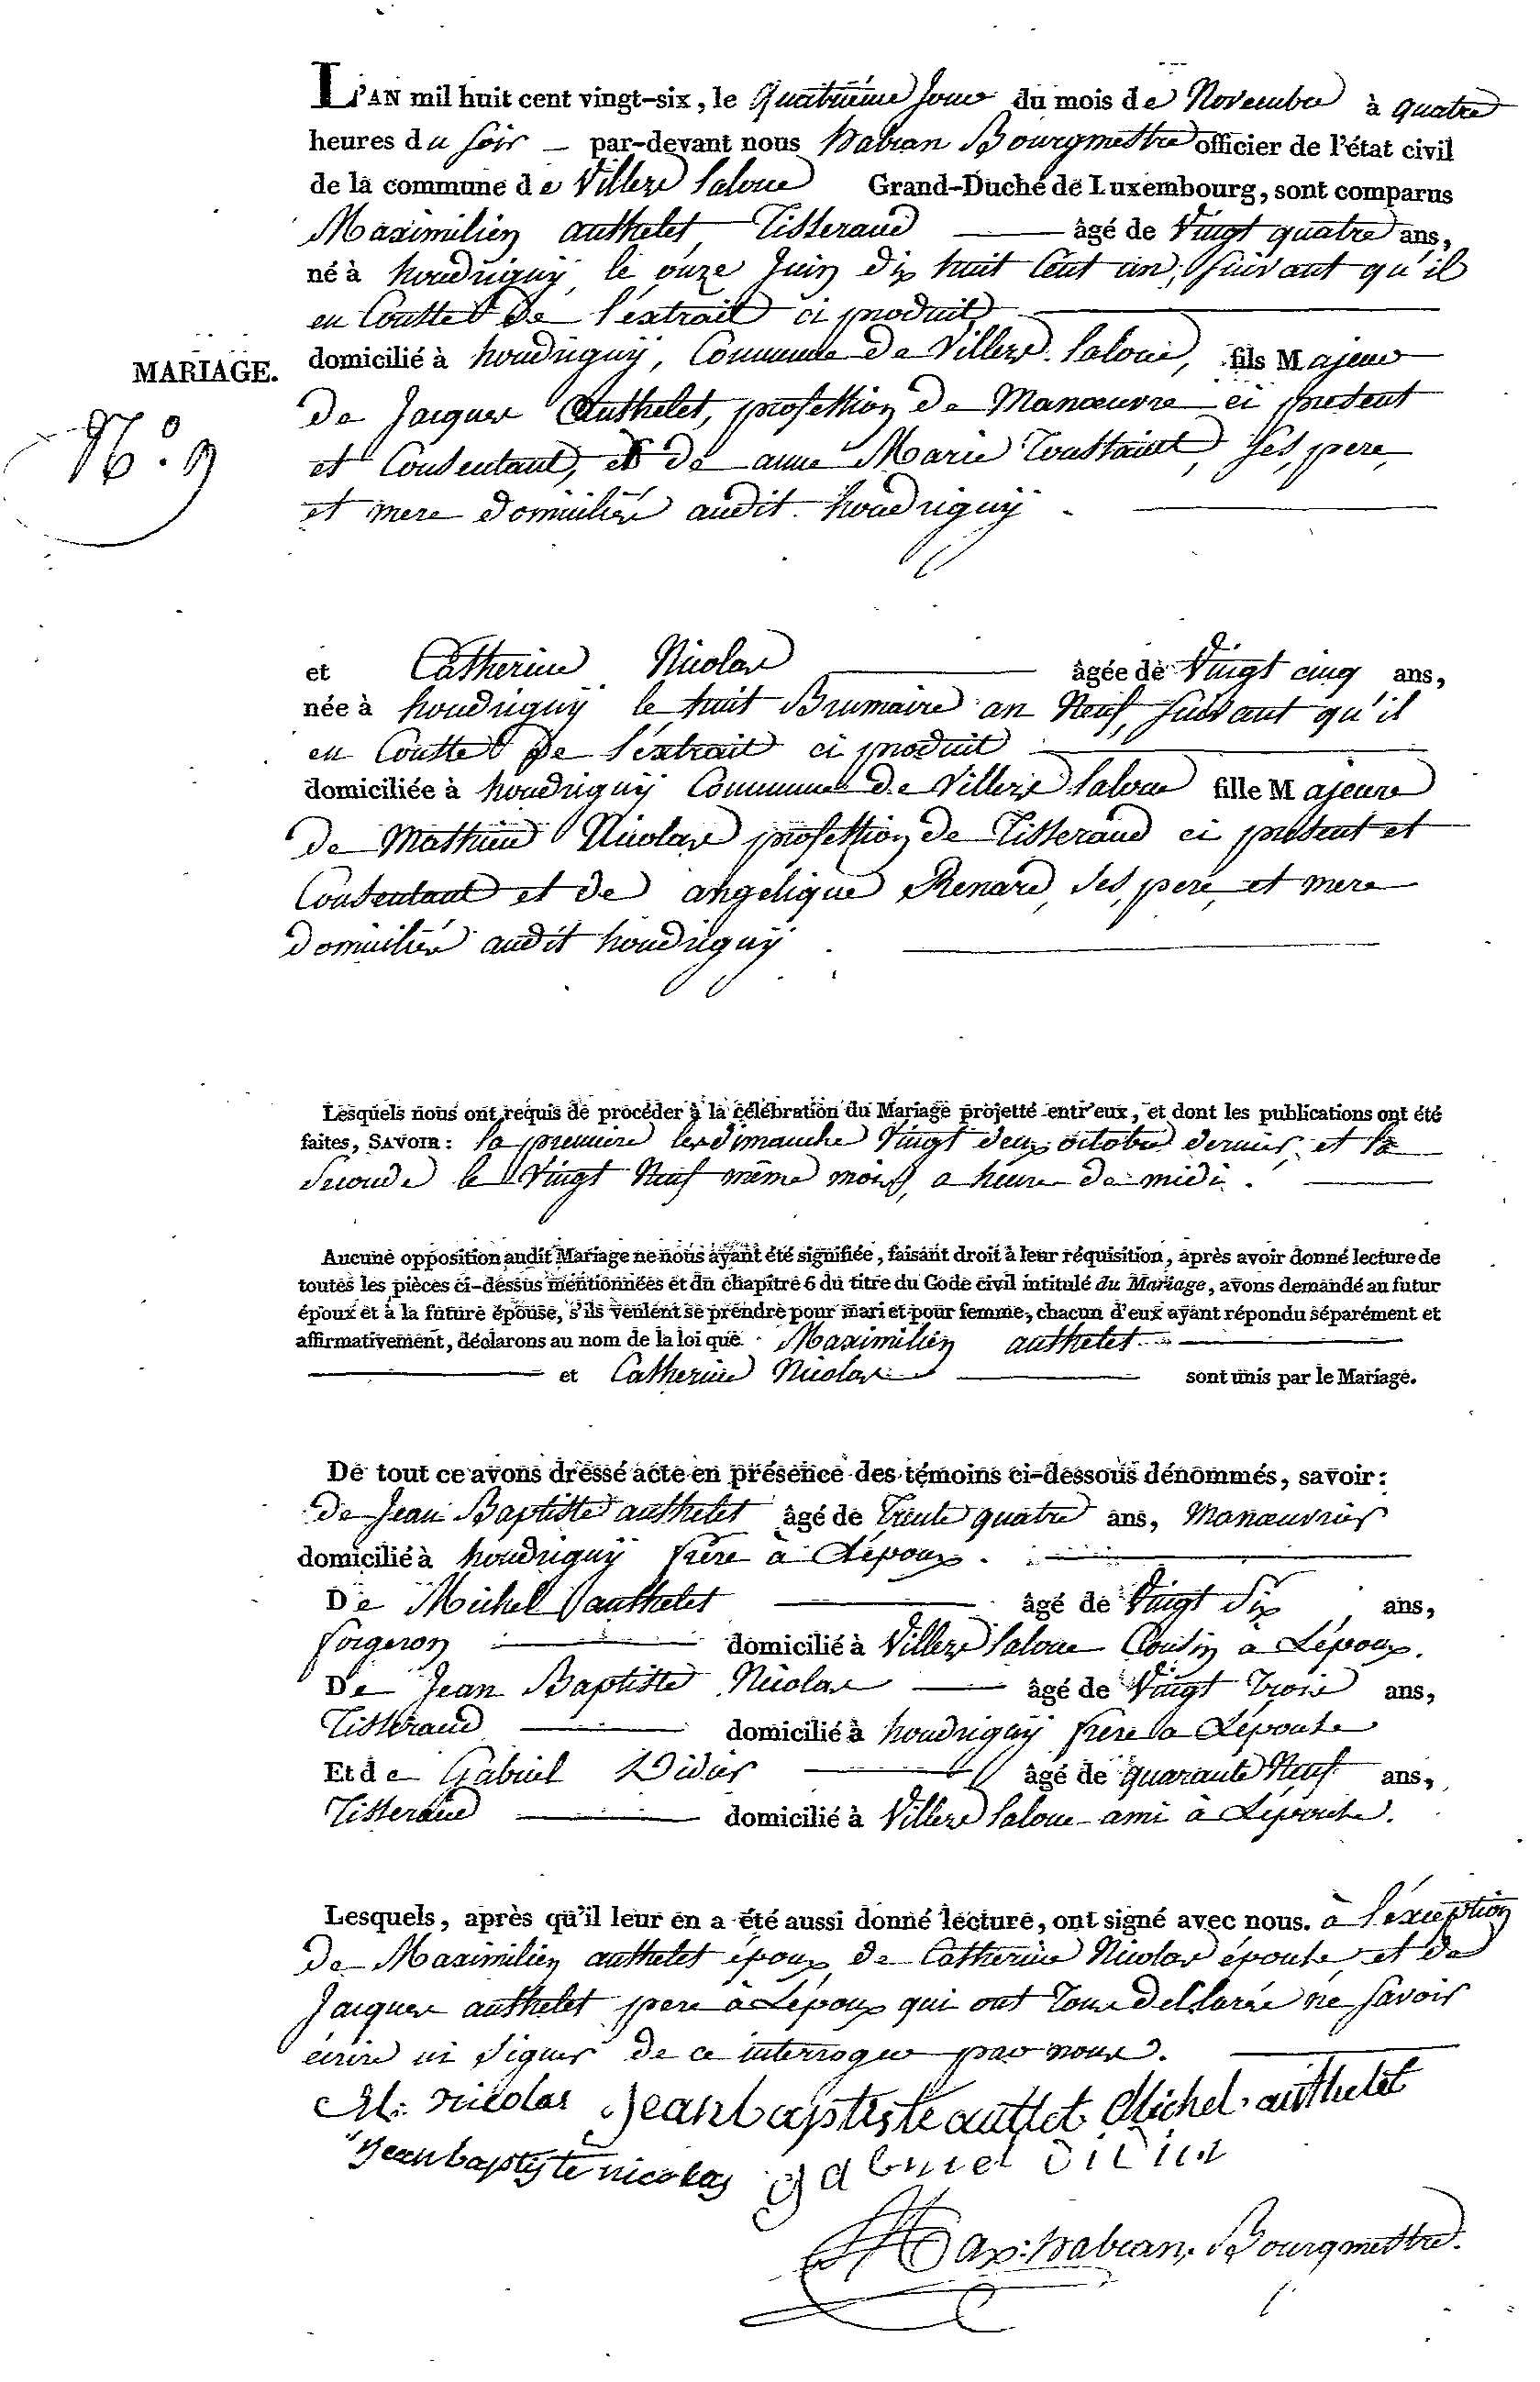 L'AN mil huit cent vingt-six, le Quatrième Jour du mois de Novembre à quatre
heures du soir par-devant nous habran Bourgmestre officier de l'état civil
de la commune de Villers Laloue Grand-Duché de Luxembourg, sont comparus
Maximilien authelet, Tisserand âgé de Vingt quatre ans,
né à houdriguÿ, le onze Juin dix huit Cent un, suivant qu'il
en Conste de l'extrait ci produit
MARIAGE.
domicilié à houdriguÿ, Commune de Villers Laloue, fils Majeur
de Jacques Authelet, profession de Manœuvre ci présent
N.º 9
et Consentant, et de anne Marie Toussaint, ses pere
et mere domiciliés audit houdriguÿ
et Catherine Nicolas âgée de Vingt cinq ans,
née à houdriguÿ le huit Brumaire an Neuf, suivant qu'il
en Conste de l'extrait ci produit
domiciliée à houdriguÿ Commune de Villers Laloue fille Majeure
de Mathieu Nicolas profession de Tisserand ci présent et
Consentant et de angelique Renard, ses pere et mere
domiciliés audit houdriguÿ
Lesquels nous ont requis de procéder à la célébration du Mariage projetté entr'eux, et dont les publications ont été
faites, SAVOIR: la premiere les dimanche Vingt deux octobre dernier, et la
seconde le Vingt Neuf même mois, a heure de midi.
Aucune opposition audit Mariage ne nous ayant été signifiée, faisant droit à leur réquisition, après avoir donné lecture de
toutes les pièces ci-dessus mentionnées et du chapitre 6 du titre du Code civil intitulé du Mariage, avons demandé au futur
époux et à la future épouse, s'ils veulent se prendre pour mari et pour femme, chacun d'eux ayant répondu séparément et
affirmativement, déclarons au nom de la loi que Maximilien authelet
et Catherine Nicolas sont unis par le Mariage.
De tout ce avons dressé acte en présence des témoins ci-dessous dénommés, savoir:
de Jean Baptiste authelet âgé de Trente quatre ans, Manœuvrier
domicilié à houdriguÿ frere à L'époux.
De Michel authelet âgé de Vingt Six ans,
forgeron domicilié à Villers Laloue Cousin à L'époux.
De Jean Baptiste Nicolas âgé de Vingt Trois ans,
Tisserand domicilié à houdriguÿ frere a L'épouse
Et de Gabriel Didier âgé de quarante Neuf ans,
Tisserand domicilié à Villers Laloue ami à L'épouse.
Lesquels, après qu'il leur en a été aussi donné lecture, ont signé avec nous. à l'exception
de Maximilien authelet époux, de Catherine Nicolas épouse, et de
Jacques authelet pere à L'époux qui ont Tous dessarés ne savoir
écrire ni signer de ce interrogés par nous.
M: nicolas Jean baptiste auttet Michel authelet
Jean baptiste nicolas gabriel didier
Max: habran, Bourgmestre.